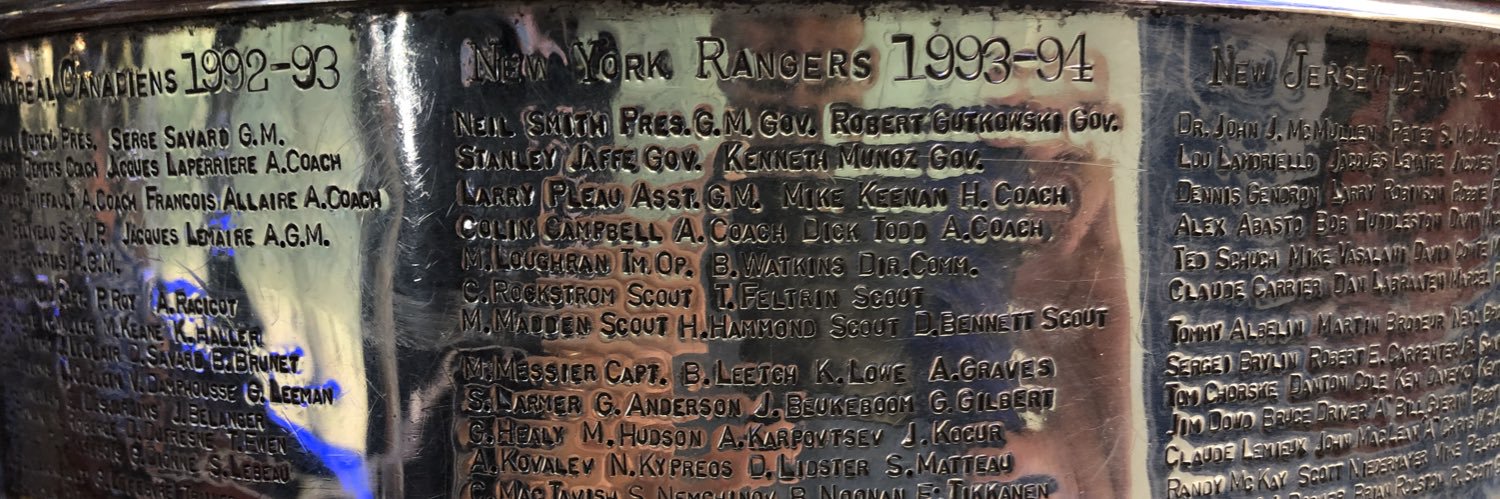 Canadiens 1992-93
Pres. Serge Savard G.M.
Coach Jacques Laperriere A.Coach
Thiffault A.Coach Francois Allaire A.Coach
Sr.V.P. Jacques Lemaire A.G.M.
A.G.M.
P.Roy A.Racicot
M.Keane K.Haller
D.Savard B.Brunet
V.Damphousse G.Leeman
J.Belanger
D.Dufresne T.Ewen
S.Lebeau
New York Rangers 1993-94
Neil Smith Pres.G.M.Gov. Robert Gutkowski Gov.
Stanley Jaffe Gov. Kenneth Munoz Gov.
Larry Pleau Asst.G.M. Mike Keenan H.Coach
Colin Campbell A.Coach Dick Todd A.Coach
M.Loughran Tm.Op. B.Watkins Dir.Comm.
C.Rockstrom Scout T.Feltrin Scout
M.Madden Scout H.Hammond Scout D.Bennett Scout
M.Messier Capt. B.Leetch K.Lowe A.Graves
S.Larmer G.Anderson J.Beukeboom G.Gilbert
G.Healy M.Hudson A.Karpovtsev J.Kocur
A.Kovalev N.Kypreos D.Lidster S.Matteau
C.MacTavish S.Nemchinov B.Noonan E.Tikkanen
New Jersey Devils
Dr. John J. McMullen Peter S.
Lou Lamoriello Jacques Lemaire
Dennis Gendron Larry Robinson
Alex Abasto Bob Huddleston
Ted Schuch Mike Vasalani David
Claude Carrier Dan Labraaten Marcel
Tommy Albelin Martin Brodeur
Sergei Brylin Robert E. Carpenter Jr.
Tom Chorske Danton Cole Ken Daneyko
Jim Dowd Bruce Driver Bill Guerin
Claude Lemieux John MacLean
Randy McKay Scott Niedermayer Mike